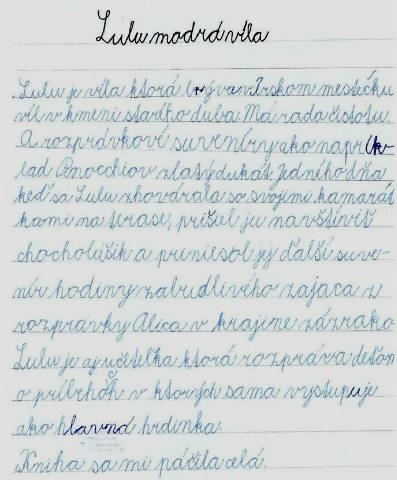 Lulu modrá víla
Lulu je víla ktorá býva v Írskom mestečku
víl v kmeni starého duba. Má rada čistotu.
A rozprávkové suveníry ako naprík-
lad Pinocchiov zlatý dukát. Jedného dňa
keď sa Lulu zhovárala so svojimi kamarát
kami na terase, prišiel ju navštíviť
chocholúšik a priniesol jej ďalší suve-
nír hodiny zabudlivého zajaca z
rozprávky Alica v krajine zázrako
Lulu je aj učiteľka ktorá rozpráva deťom
o príbehoch v ktorých sama vystupuje
ako hlavná hrdinka.
Kniha sa mi páčila celá.